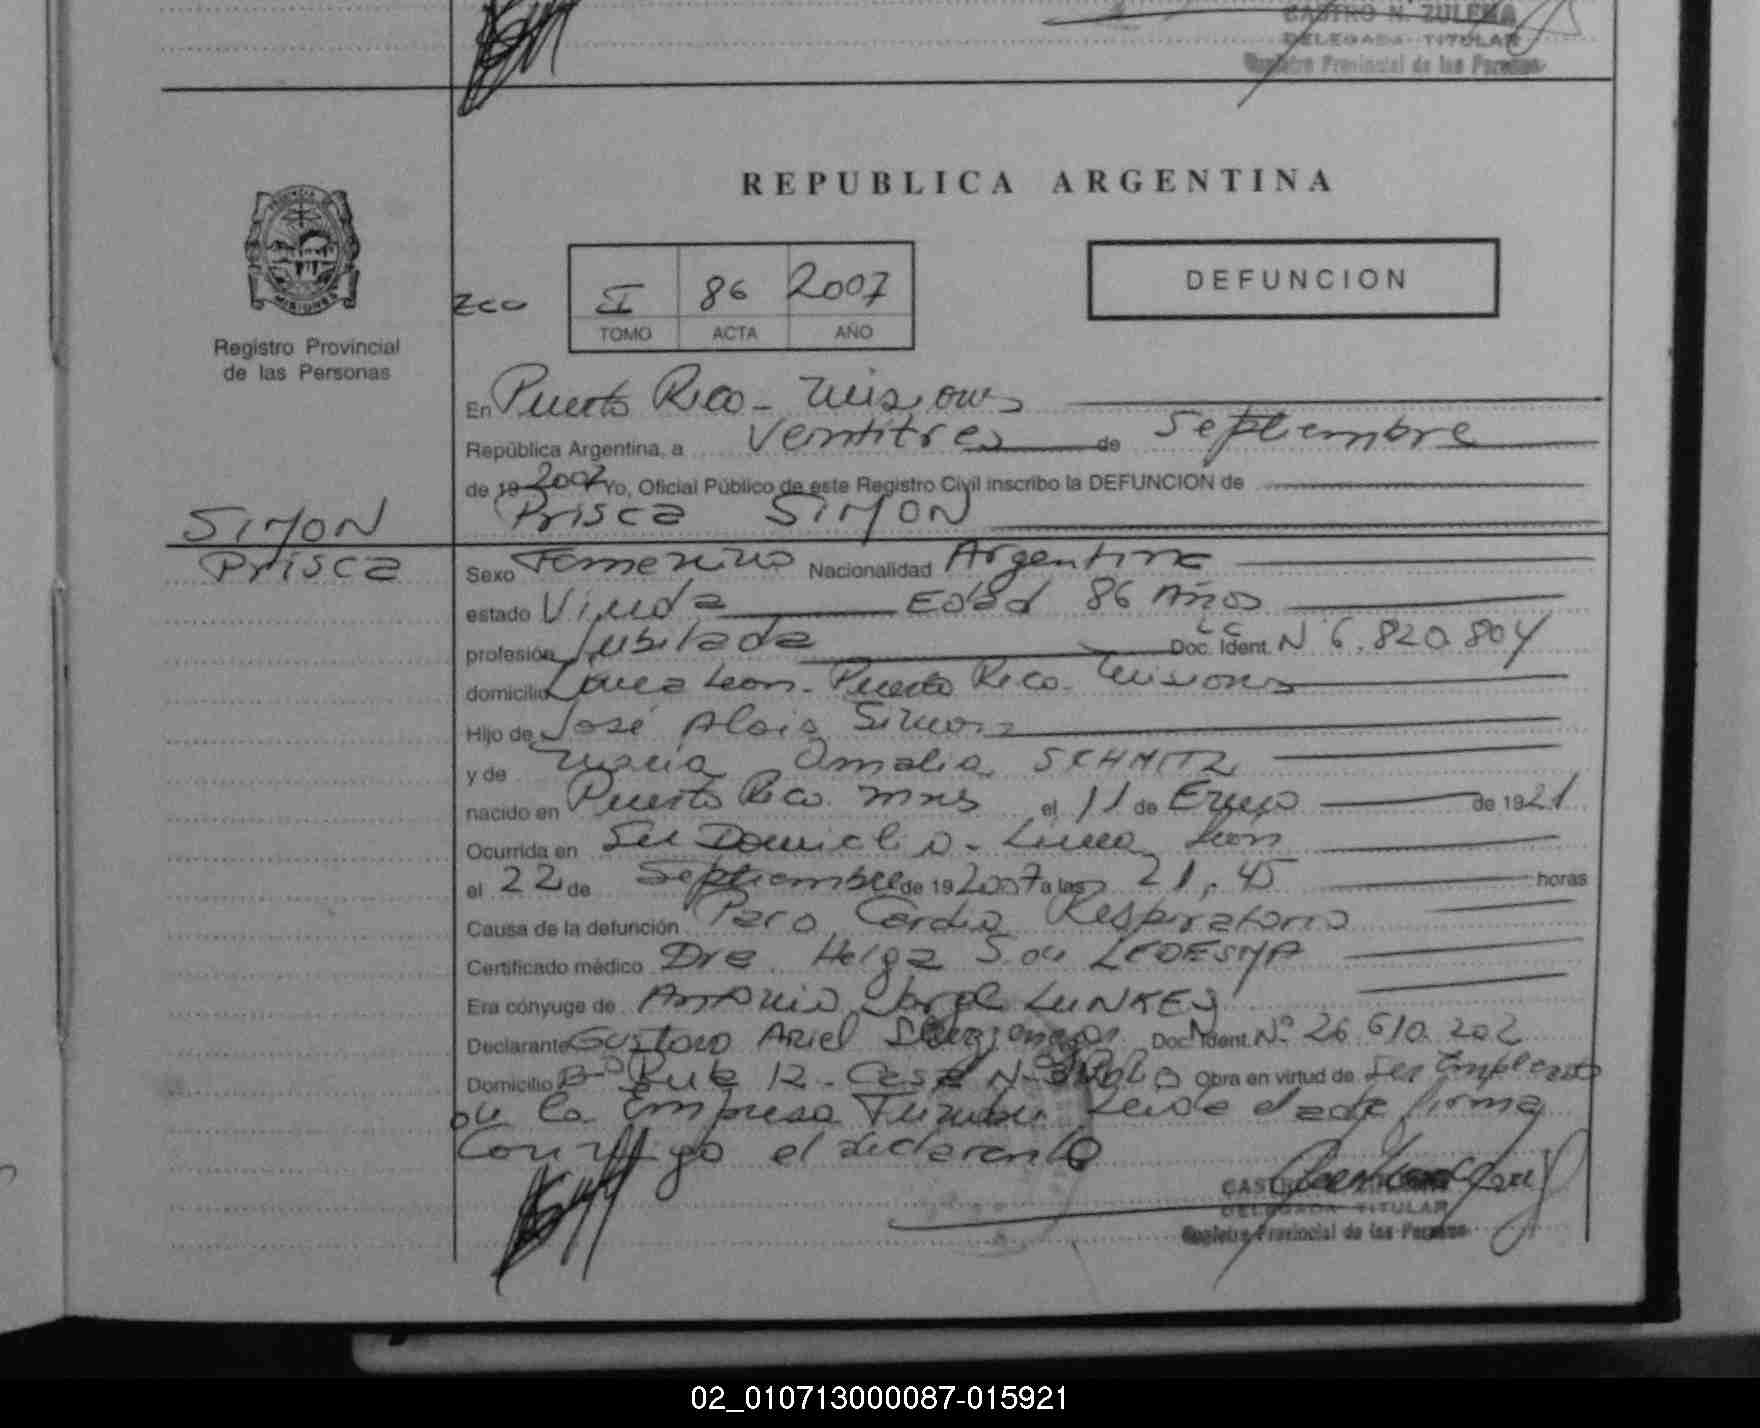 CASTRO N. ZULEMA
DELEGADA TITULAR
Registro Provincial de las Personas
REPUBLICA ARGENTINA
PROVINCIA DE
MISIONES
I 86 2007
TOMO ACTA AÑO
DEFUNCION
Registro Provincial
de las Personas
En Puerto Rico - Misiones
República Argentina, a Ventitres de Septiembre
de 19 2007 Yo, Oficial Público de este Registro Civil inscribo la DEFUNCION de
SIMON
Prisca SIMON
Prisca
Sexo Femenino Nacionalidad Argentina
estado Viuda Edad 86 Años
profesión Jubilada Doc. Ident. LC N 6.820.804
domicilio Linea Leon - Puerto Rico - Misiones
Hijo de José Alois Simon
y de Maria Amalia SCHMITZ
nacido en Puerto Rico Mnes el 11 de Enero de 1921
Ocurrida en Su Domicilio - Linea Leon
el 22 de Septiembre de 19 2007 a las 21,45 horas
Causa de la defunción Paro Cardio Respiratorio
Certificado médico Dra Helga S. de LEDESMA
Era cónyuge de Antonio Jorge LUNKES
Declarante Gustavo Ariel Doc. Ident. Nº 26.610.202
Domicilio Bº 12 - Casa Nº Obra en virtud de Ser Empleado
de la Empresa Leida el acta firma
Conmigo el declarante
CASTRO N. ZULEMA
DELEGADA TITULAR
Registro Provincial de las Personas
02_010713000087-015921